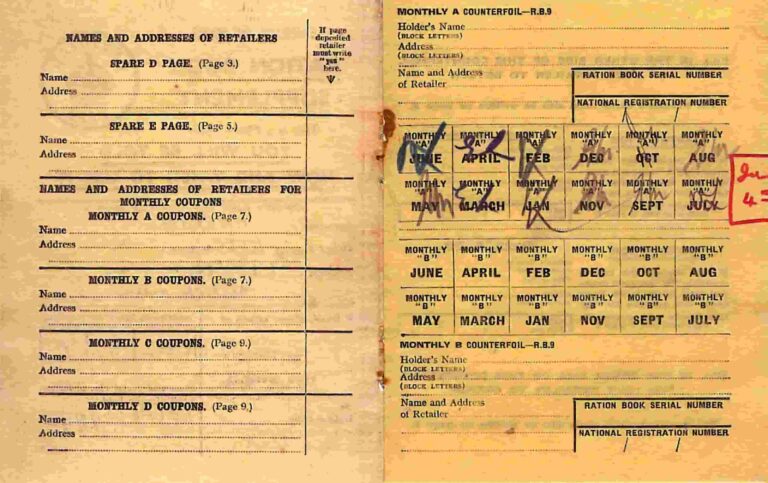 NAMES AND ADDRESSES OF RETAILERS
If page
deposited
retailer
must write
"yes"
here.
SPARE D PAGE. (Page 3.)
Name
Address
SPARE E PAGE. (Page 5.)
Name
Address
NAMES AND ADDRESSES OF RETAILERS FOR
MONTHLY COUPONS
MONTHLY A COUPONS. (Page 7.)
Name
Address
MONTHLY B COUPONS. (Page 7.)
Name
Address
MONTHLY C COUPONS. (Page 9.)
Name
Address
MONTHLY D COUPONS. (Page 9.)
Name
Address
MONTHLY A COUNTERFOIL—R.B.9
Holder's Name
(BLOCK LETTERS)
Address
(BLOCK LETTERS)
Name and Address
of Retailer
RATION BOOK SERIAL NUMBER
NATIONAL REGISTRATION NUMBER
MONTHLY MONTHLY MONTHLY MONTHLY MONTHLY MONTHLY
"A" "A" "A" "A" "A" "A"
JUNE APRIL FEB DEC OCT AUG
MONTHLY MONTHLY MONTHLY MONTHLY MONTHLY MONTHLY
"A" "A" "A" "A" "A" "A"
MAY MARCH JAN NOV SEPT JULY
MONTHLY MONTHLY MONTHLY MONTHLY MONTHLY MONTHLY
"B" "B" "B" "B" "B" "B"
JUNE APRIL FEB DEC OCT AUG
MONTHLY MONTHLY MONTHLY MONTHLY MONTHLY MONTHLY
"B" "B" "B" "B" "B" "B"
MAY MARCH JAN NOV SEPT JULY
MONTHLY B COUNTERFOIL—R.B.9
Holder's Name
(BLOCK LETTERS)
Address
(BLOCK LETTERS)
Name and Address
of Retailer
RATION BOOK SERIAL NUMBER
NATIONAL REGISTRATION NUMBER